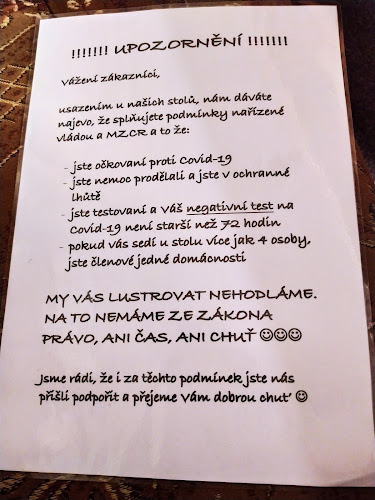 !!!!!!! UPOZORNĚNÍ !!!!!!!
Vážení zákazníci,
usazením u našich stolů, nám dáváte
najevo, že splňujete podmínky nařízené
vládou a MZCR a to že:
- jste očkovaní proti Covid-19
- jste nemoc prodělali a jste v ochranné
lhůtě
- jste testovaní a Váš negativní test na
Covid-19 není starší než 72 hodin
- pokud vás sedí u stolu více jak 4 osoby,
jste členové jedné domácnosti
MY VÁS LUSTROVAT NEHODLÁME.
NA TO NEMÁME ZE ZÁKONA
PRÁVO, ANI ČAS, ANI CHUŤ ☺☺☺
Jsme rádi, že i za těchto podmínek jste nás
přišli podpořit a přejeme Vám dobrou chuť ☺